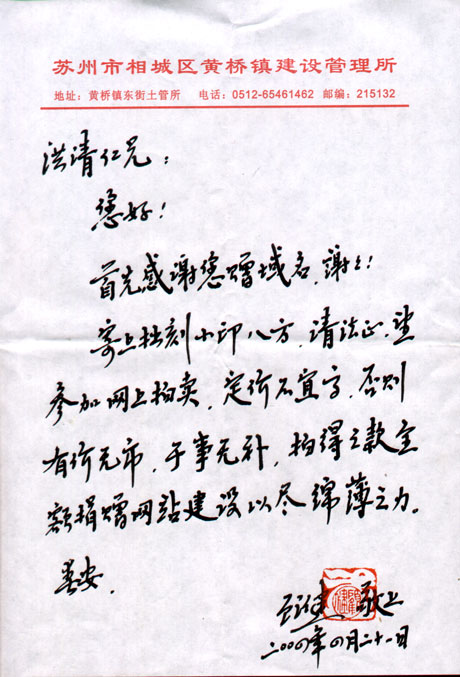 苏州市相城区黄桥镇建设管理所
地址：黄桥镇东街土管所 电话：0512-65461462 邮编：215132
洪清仁兄：
您好！
首先感谢您赠域名，谢之！
寄上拙刻小印八方，请法正，望
参加网上拍卖，定价不宜高，否则
有价无市，于事无补，拍得之款全
额捐赠网站建设以尽绵薄之力。
春安．
敬上
二〇〇四年四月二十一日